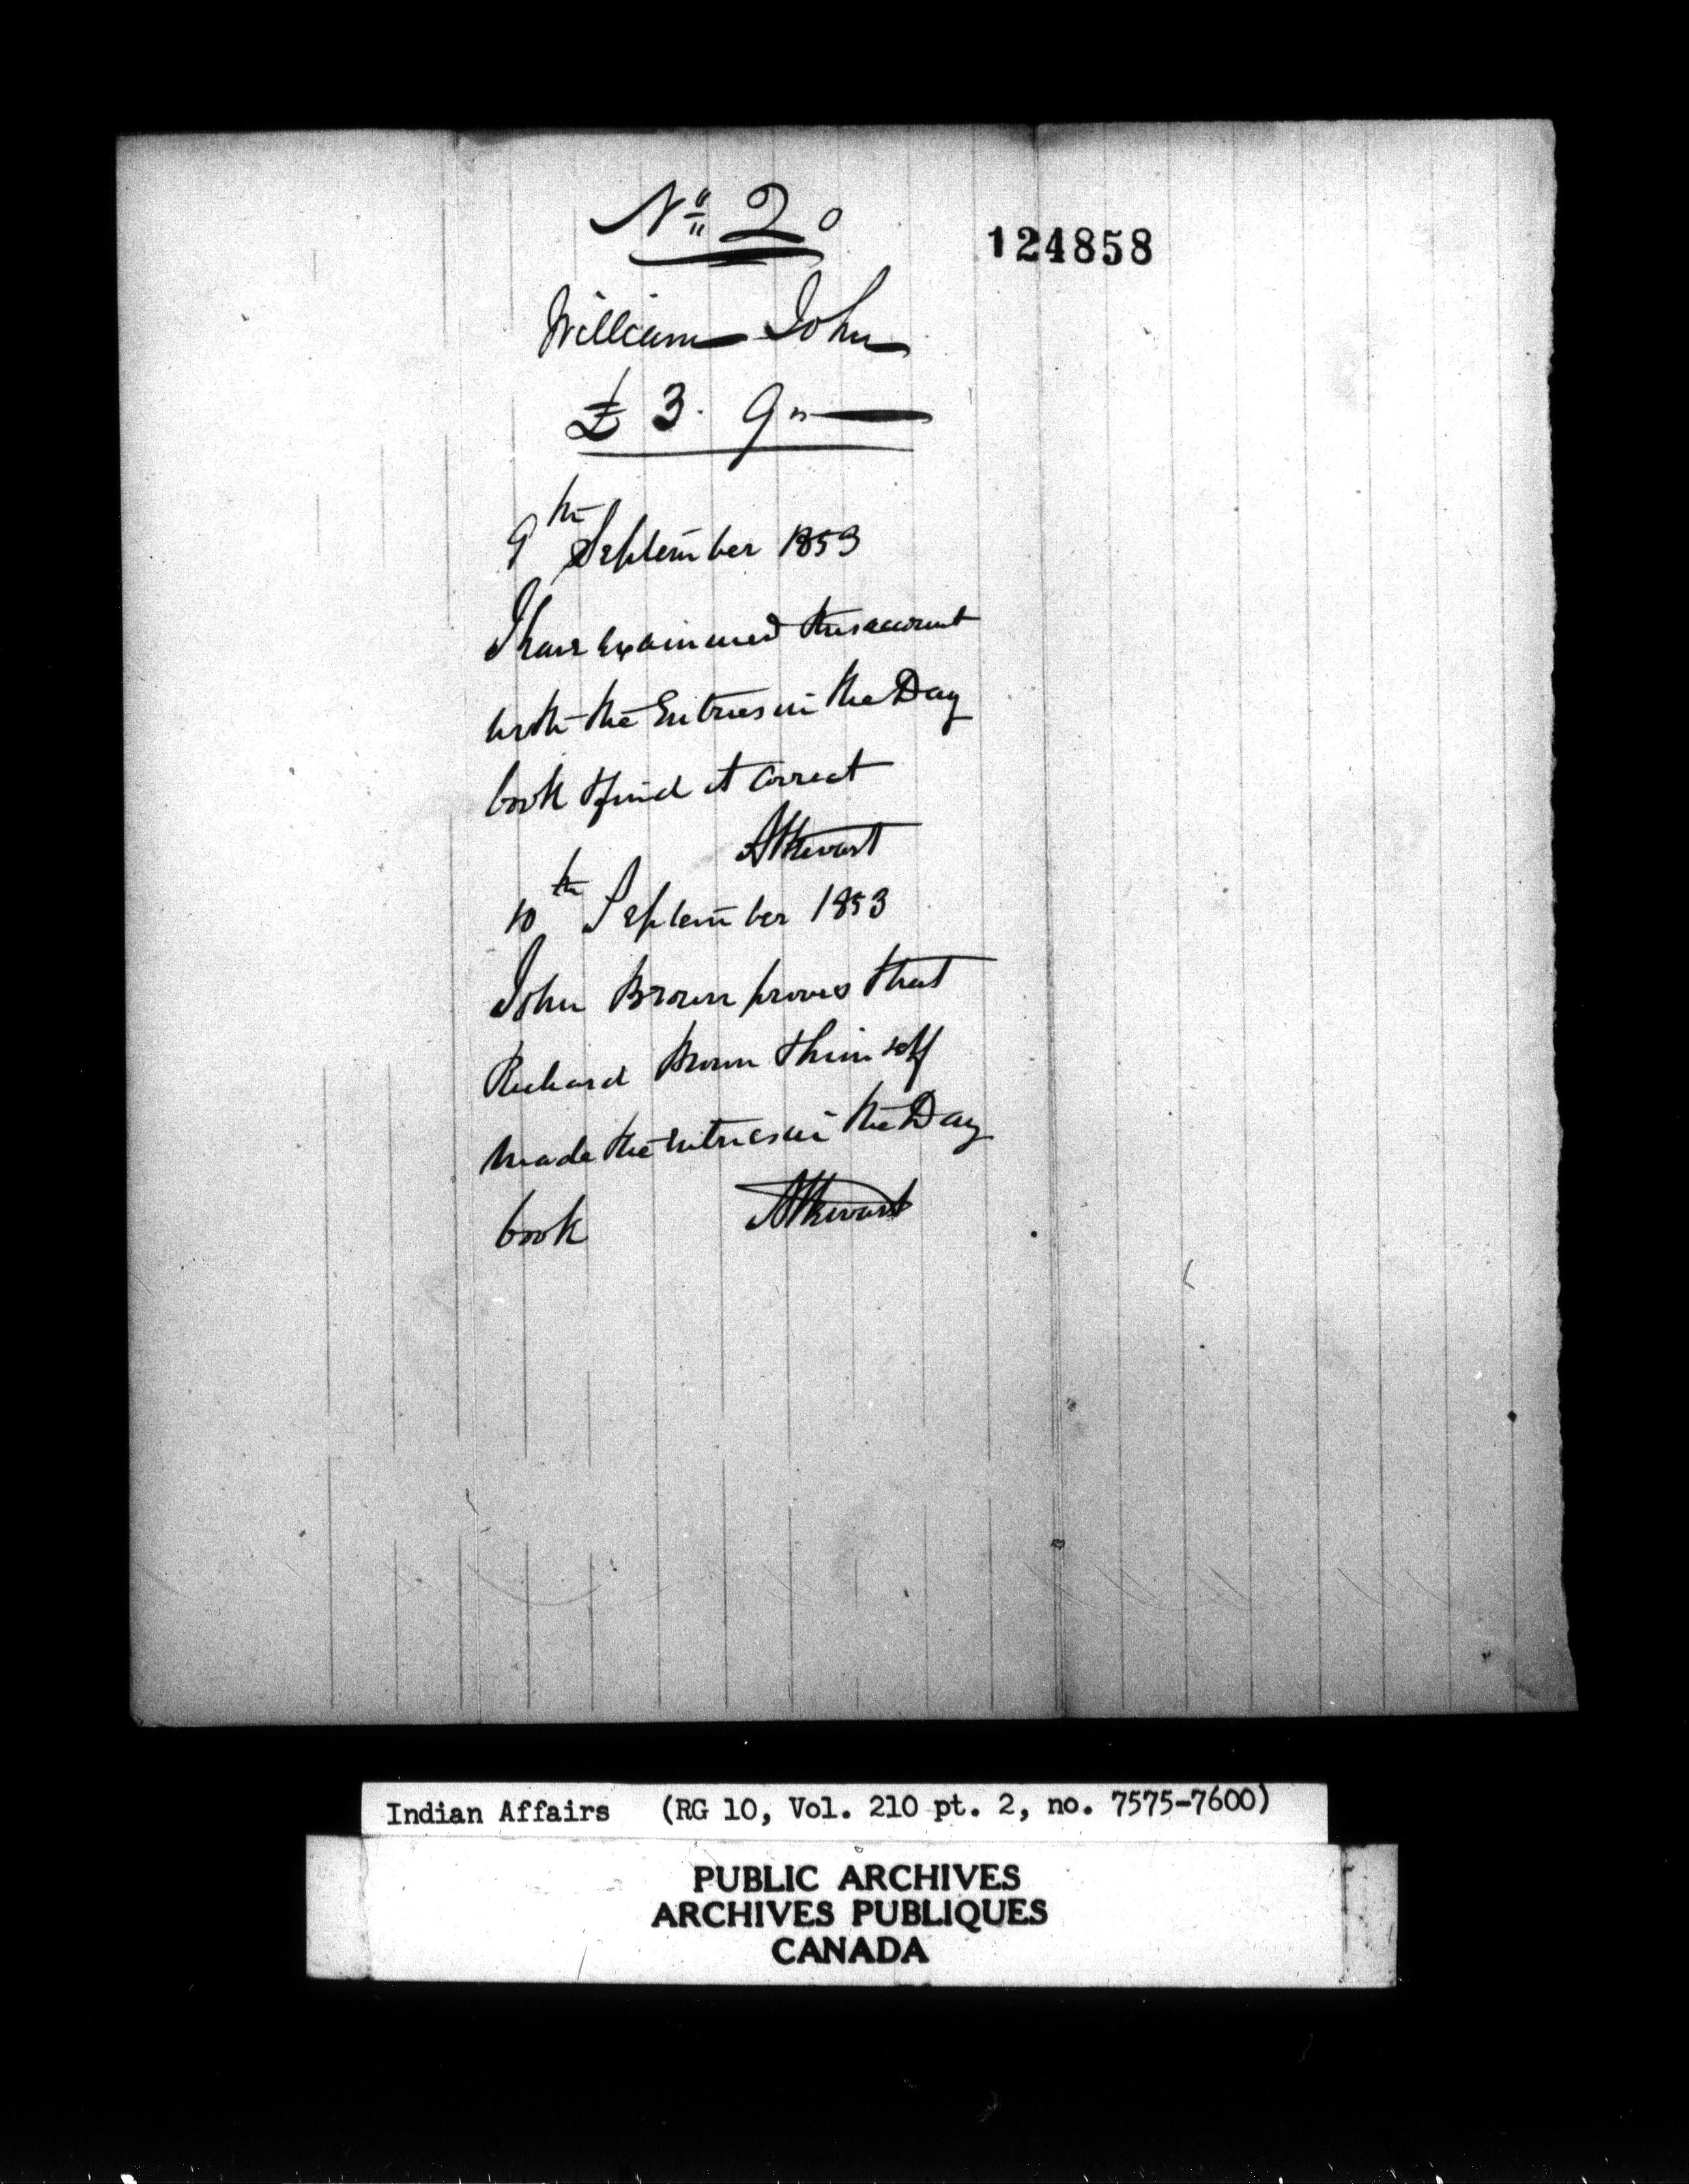 No 2
124858
William John
£ 3. 9 "—
9th September 1853
I have examined this account
with the Entries in the Day
book & find it correct
AStewart
10th September 1853
John Brown proves that
Richard Brown & himself
made the entries in the Day
book AStewart
Indian Affairs (RG 10, Vol. 210 pt. 2, no. 7575-7600)
PUBLIC ARCHIVES
ARCHIVES PUBLIQUES
CANADA